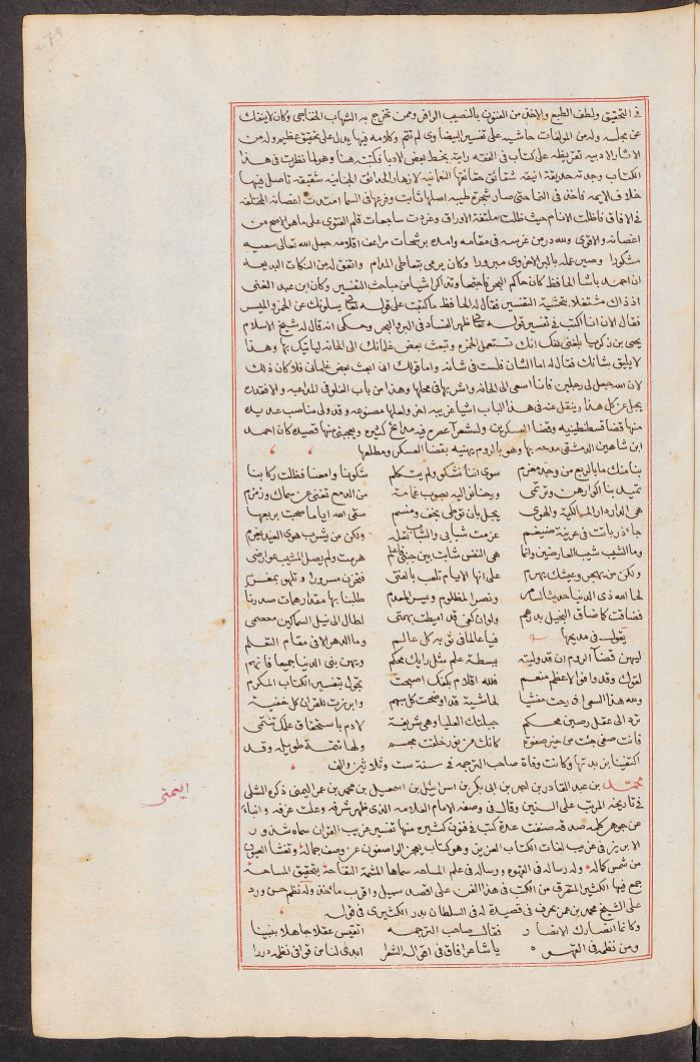 279
في التحقيق ولطف الطبع والاخذ من الفنون بالنصيب الوافر وممن تخرج به الشهاب الخفاجي وكان لاينفك
عن مجلسه وله من المولفات حاشيه على تفسير البيضاوى لم تتم وكلامه فيها يدل على تحقيق عظيم وله من
الاثار الادبيه تقريظه على كتاب في الفقه رايته بخط بعض الادبا فكتبته هنا وهو لما نظرت في هذا
الكتاب وجدته حديقة انيقه شقائق حقائقها النعمانيه لازهار الحدائق الجنانيه شقيقه تاصل فيها
خلاف الايمه فاخذ في النما حتى صار شجرة طيبه اصلها ثابت وفرعها في السما امتدت اغصانه المختلفه
في الافاق فاظلت الانام حيث ظلت ملتفة الاوراق وغردت ساجعات قلم الفتوى على ماهو الاصح من
اغصانه والاقوى ولله در من غرسه في مقامه وامده برشحات من اقلامه جعل الله تعالى سعيه
مشكورا وصير عمله بالبر الاخروى مبرورا وكان يرمى بتعاطى المدام واتفق له من النكات البديعه
ان احمد باشا الحافظ كان حاكم البحر فاجتمعا وتذاكرا شيا من مباحث التفسير وكان ابن عبد الغنى
اذ ذاك مشتغلا بتحشية التفسير فقال له الحافظ ما كتبت على قوله تعالى يسلونك عن الخمر والميسر
فقال الان انا اكتب في تفسير قوله تعالى ظهر الفساد في البر والبحر وحكى انه قال له شيخ الاسلام
يحيى بن زكريا بلغني عنك انك تستعمل الخمره وتبعث بعض غلمانك الى الحانه لياتيك بها وهذا
لا يليق بشانك فقال له اما الشان فلست في شانه واما قولك انى ابعث بعض غلمانى فلا كان ذلك
لان الله جعل لى رجلين فانا اسعى الى الحانه واشربها في محلها وهذا من باب الغلو في المداعبه والافقدره
يجل عن كل هذا وينقل عنه في هذا الباب اشيا غريبه اخر ولعلها مصنوعه وقد ولى مناصب عديده
منها قضا قسطنطينيه وقضا العسكرين ولشعرا عصره فيه مدائح كثيره ويعجبنى منها قصيده كان احمد
ابن شاهين الدمشقى مدحه بها وهو بالروم يهنيه بقضا العسكر ومطلعها
بنا منك ما بالربع من وجد مغرم سوى اننا نشكو ولم يتكلم شكونا وامعنا فظلت ركابنا
تميد بنا الاكوار هن وترتمى ورحنا نواليه بصوب غمامة من الدمع تغنى عن سماك ومرزم
هى الدار دار المالكية والهوى يجل بان توطى بخف ومنسم سقى الله اياما صحبت بربعها
جاذر باتت في عرينة ضيغم عزمت شبابى والشباب تعله ولكن من يشرب هوى الغيد يهرم
وما الشيب شيب العارضين وانما هى النفس شابت بين جنبى فاعلم هرمت ولم يصل المشيب عوارضى
ولكن من يهجى وعيشك يهرم على انها الايام تلعب بالفتى فتحزن مسرورا وتلهو بمغرم
لحا الله ذى الدنيا حديثا لسامر ونصرا لمظلوم ويسرا لمعدم طلبنا بها مقدار همات صدرنا
فضاقت كما ضاق البخيل بدرهم ولوان كونى قد اميطت بهمتى لطال الى نيل السماكين معصمى
يقول في مديحها فيا عالما في ثوبه كل عالم وما الدهر الا في مقام التعلم
ليهن قضآ الروم ان قد وليته ببسطة علم مثل رايك محكم ويهن بنى الدنيا جميعا فانهم
لقوك وقد وافو الاعظم منعم فلله اقلام بكفك اصبحت تجول بتفسير الكتاب المكرم
ولله هذا السعى اذ رحت منشيا لحاشية قد اوضحت كل مبهم وابرزت للقران كل خفية
ترد الى عقل رصين محكم جبلتك العليا وهى شريفة لادم باستحقاق علمك تنتمى
فانت صفى جئت من خير صفوة كانك من نور خلقت مجسم ولها تتمة طويله وقد
اكتفينا بنبذتها وكانت وفاة صاحب الترجمه في سنة ست وثلاثين والف
اليمنى
محمد بن عبد القادر بن احمد بن ابى بكر بن اسرائيل بن اسمعيل بن محمد بن عمر اليمنى ذكره الشلى
في تاريخه المرتب على السنين وقال في وصفه الامام العلامه الذى ظهر شرفه وعلت غرفه وانباء
عن جوهر كلمه صدقه صنفت عدة كتب في فنون كثيره منها تفسير غريب القران سماه شذور
الابريز في غريب لغات الكتاب العزيز وهو كتاب يعجز الواصفون عن وصف جماله وتعشا العيون
من شمس كماله وله رساله في القهوه ورساله في علم المساحه سماها المنحة النفاحه بتحقيق المساحة
جمع فيها الكثير المتفرق من الكتب في هذا الفن على اقصد سهيل واقرب ماخذ وله نظم حسن ورد
على الشيخ محمد بن عمر بحرق في قصيدة له في السلطان بدر الكثيرى في قوله
وكانما انصارك الانصار فقال صاحب الترجمه اتقيس عقلا جاهلا بنبينا
ومن نظمه في القهوه يا شاعرا فاق في اقواله الشعرا ابدى لنا من قوافى نظمه دررا